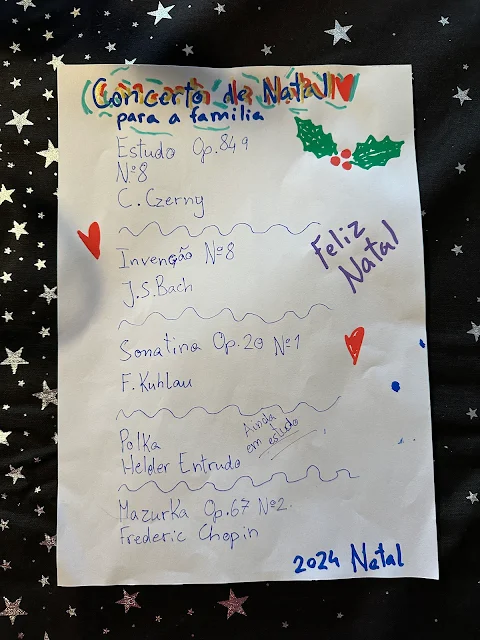 Concerto de Natal
para a familia
Estudo Op.849
Nº8
C. Czerny
Feliz
Natal
Invenção Nº8
J.S.Bach
Sonatina Op.20 Nº1
F. Kuhlau
Polka
Helder Entrudo
Ainda
em estudo
Mazurka Op.67 Nº2.
Frederic Chopin
2024 Natal